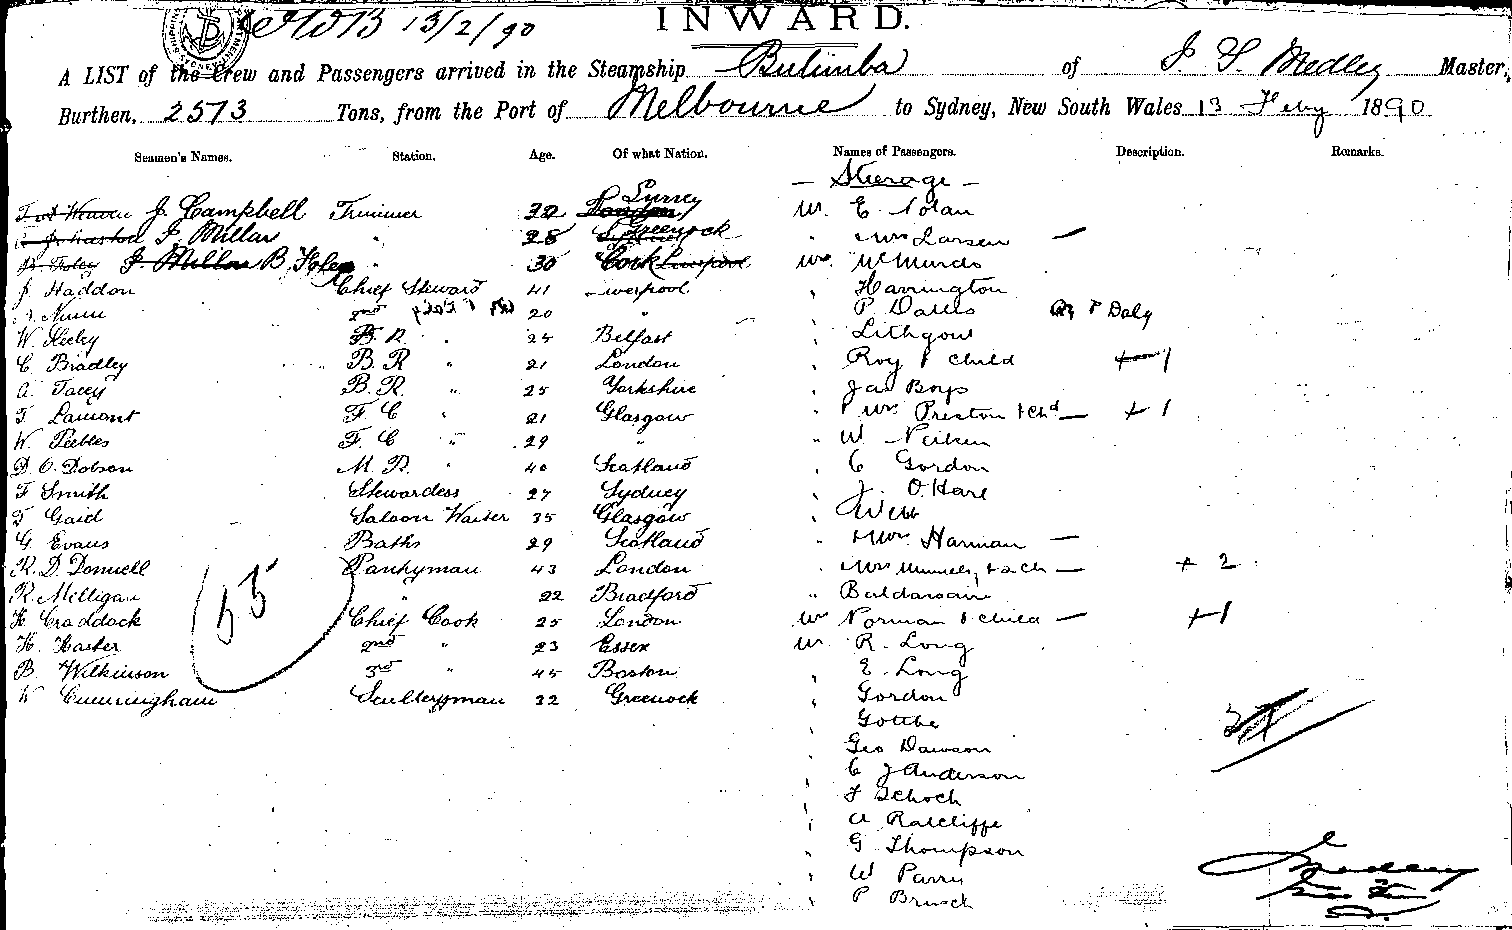 13/2/90
INWARD.
A LIST of the Crew and Passengers arrived in the Steamship Bulimba of J. S. Medley Master,
Burthen, 2573 Tons, from the Port of Melbourne to Sydney, New South Wales 13 Feby 1890
Seamen's Names. Station. Age. Of what Nation. Names of Passengers. Description. Remarks.
— Steerage —
J. Campbell Trimmer 32 Surrey London Mr. E. Nolan
J. Millar " 28 Greenock " Mrs Larsen —
J. Millar B. Foley " 30 Cork Liverpool Mr. McMurdo
J. Haddon Chief Steward 41 Liverpool " Harrington
Nunn 2nd 20 " " P. Dalls or P Daly
W. Seeley B. R. " 24 Belfast " Lithgow
C. Bradley B. R " 21 London " Roy & child + 1
A. Tacey B. R. " 25 Yorkshire " Jas Boys
T. Lamont F. C " 21 Glasgow " Mrs Preston & Chd — + 1
W. Peebles F. C " 29 " " W.
D. O. Dobson M. R. " 40 Scotland " C Gordon
F Smith Stewardess 27 Sydney " J. O'Hare
T Gaid Saloon Waiter 35 Glasgow " Webb
G. Evans Baths 29 Scotland " Mrs. Harman —
R. D. Donnell Pantryman 43 London " Mrs & 2 Ch — + 2
R. Milligan " 22 Bradford "
H. Craddock Chief Cook 25 London Mr Norman & child — + 1
H. Haster 2nd " 23 Essex Mr. R. Long
B. Wilkinson 3rd " 45 Boston " E. Long
W Cunningham Sculleryman 32 Greenock " Gordon
55
" Gotthe
" Geo Dawson
" C J Anderson
" F Schoch
" A Ratcliffe
" G Thompson
" W Parry
" P
Medley